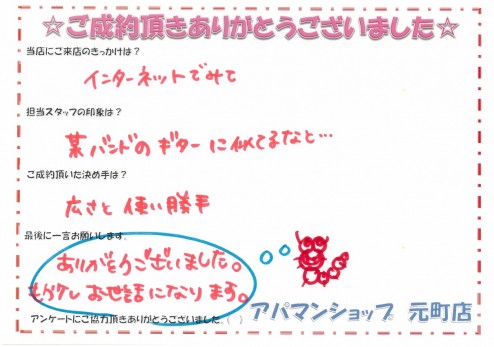 ☆ご成約頂きありがとうございました☆
当店にご来店のきっかけは？
インターネットでみて
担当スタッフの印象は？
某バンドのギターに似てるなと…
ご成約頂いた決め手は？
広さと使い勝手
最後に一言お願いします。
ありがとうございました。
もう少しお世話になります。
アパマンショップ 元町店
アンケートにご協力頂きありがとうございました（ ）